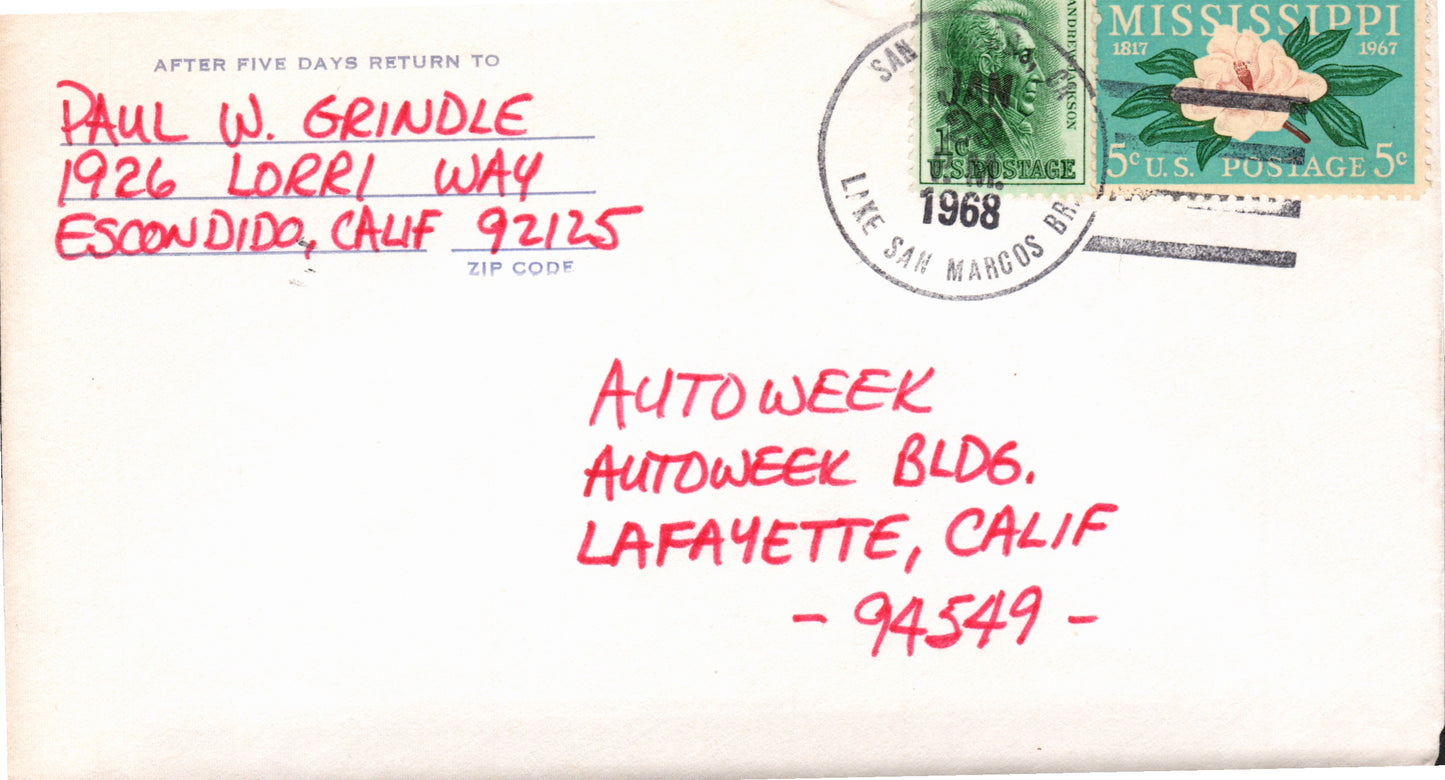 AFTER FIVE DAYS RETURN TO
PAUL W. GRINDLE
1926 LORRI WAY
ESCONDIDO, CALIF 92125
ZIP CODE
SAN
JAN
1968
LAKE SAN MARCOS BR.
ANDREW JACKSON
1c
U.S. POSTAGE
MISSISSIPPI
1817 1967
5c U.S. POSTAGE 5c
AUTOWEEK
AUTOWEEK BLDG.
LAFAYETTE, CALIF
- 94549 -